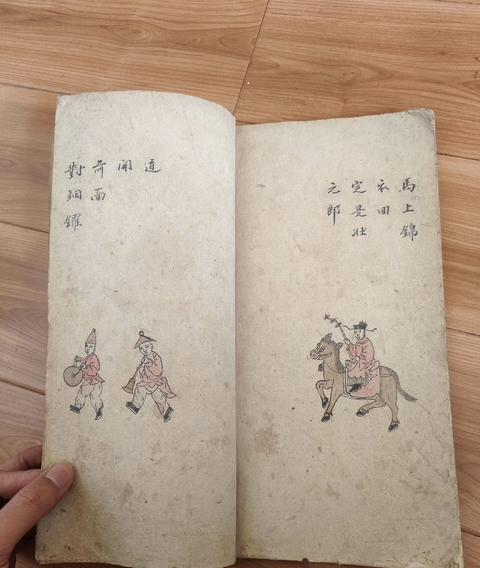 馬上錦
衣回
完是壮
元郎
對銅鑼
前面
開
道